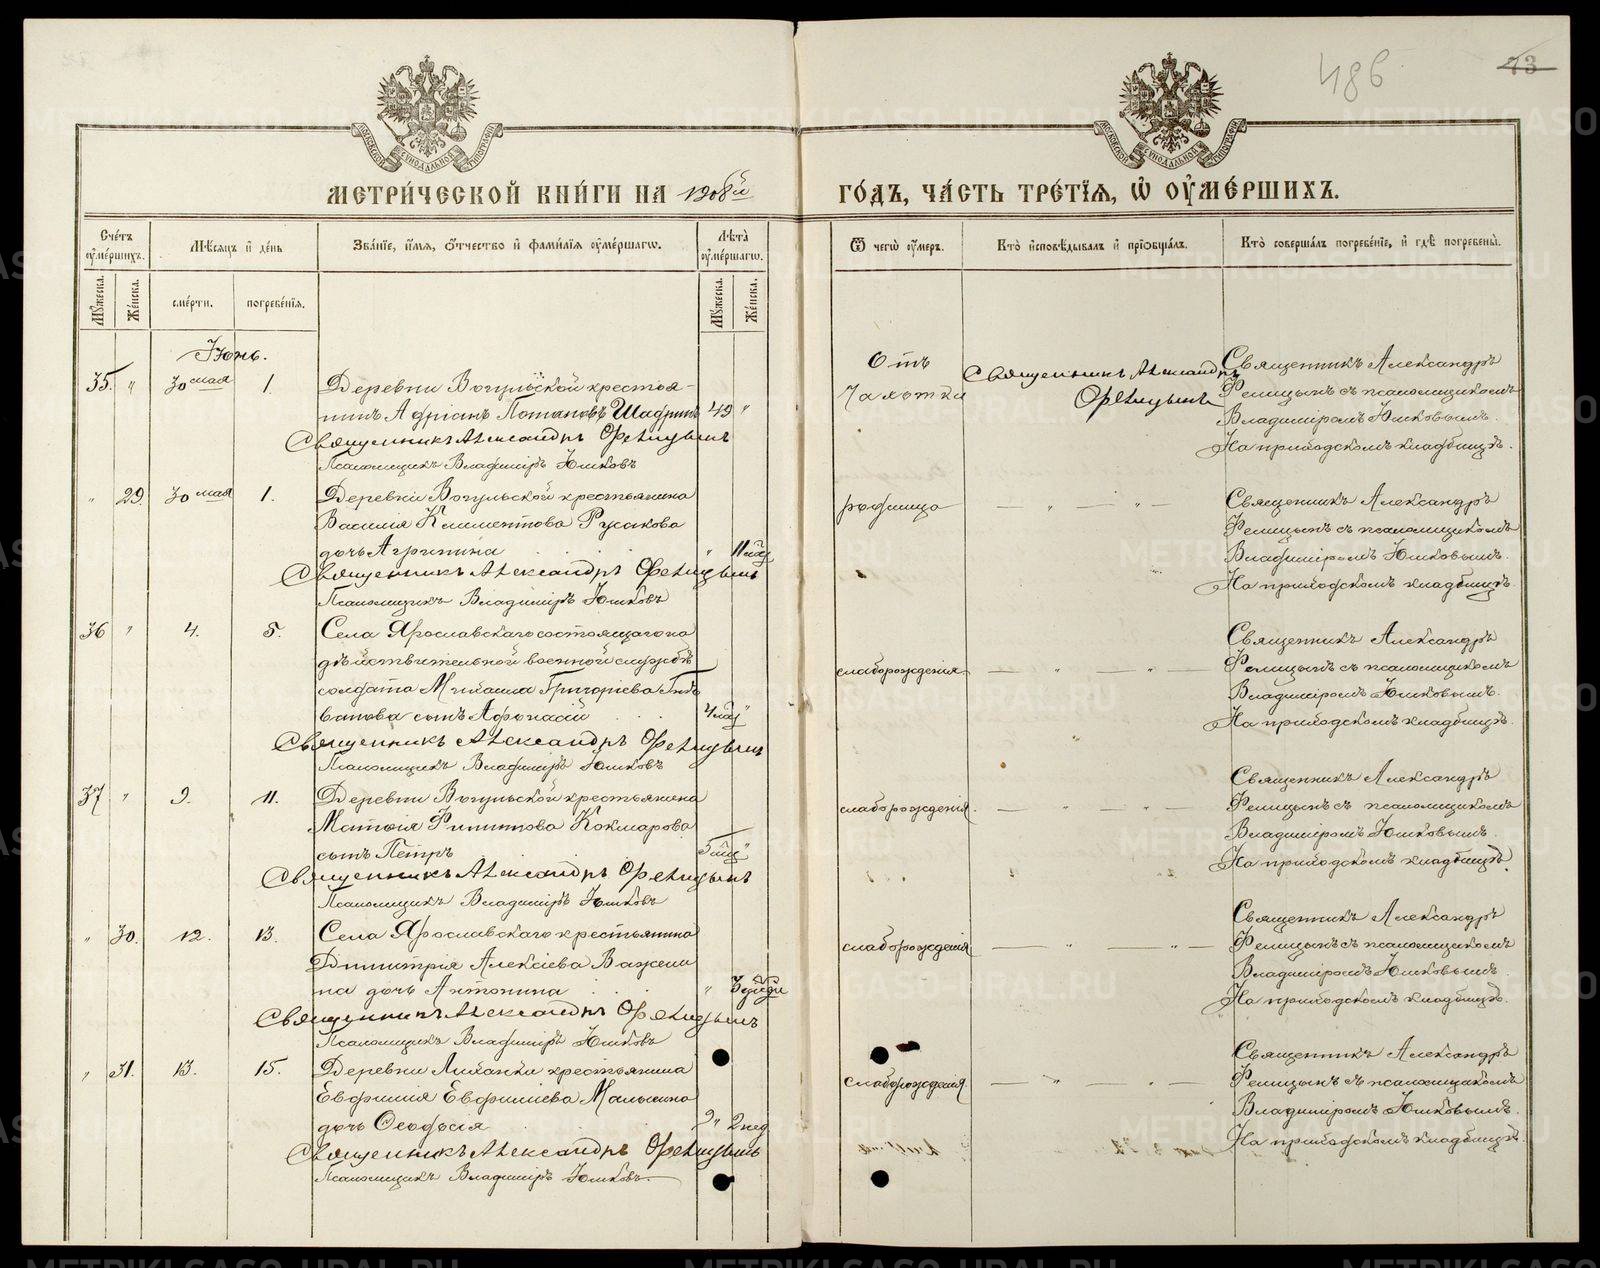 486
73
МОСКОВСКОЙ СѴНОДАЛЬНОЙ ТИПОГРАФІИ
МОСКОВСКОЙ СѴНОДАЛЬНОЙ ТИПОГРАФІИ
МЕТРИ́ЧЕСКОЙ КНИ́ГИ НА 1908й ГО́ДЪ, ЧА́СТЬ ТРЕ́ТІЯ, Ѡ ОУ҆МЕ́РШИХЪ.
Сче́тъ оу҆ме́ршихъ.
Мѣ́сяцъ и҆ де́нь
Зва́нїе, и҆́мя, ѻ҆́тчество и҆ фами́лїя оу҆ме́ршагѡ.
Лѣ́та оу҆ме́ршагѡ.
Ѿ чегѡ̀ оу҆́меръ.
Кто̀ и҆сповѣ́дывалъ и҆ прїѡбща́лъ.
Кто̀ соверша́лъ погребе́нїе, и҆ гдѣ̀ погребены̀.
Му́жеска.
Же́нска.
сме́рти.
погребе́нїя.
Му́жеска.
Же́нска.
Іюнь.
35. " 30 мая 1.
Деревни Вогульской крестья-
нинъ Адріанъ Потаповъ Шадринъ 49 "
Священникъ Александръ Фелицынъ
Псаломщикъ Владиміръ Юшковъ
Отъ
Чахотки
Священникъ Александръ
Фелицынъ
Священникъ Александръ
Фелицынъ съ псаломщикомъ
Владиміромъ Юшковымъ.
На приходскомъ кладбищѣ.
" 29. 30 мая 1.
Деревни Вогульской крестьянина
Василія Климентова Русакова
дочь Агрипина " 11 мѣс
Священникъ Александръ Фелицынъ
Псаломщикъ Владиміръ Юшковъ
родимца — " — " —
Священникъ Александръ
Фелицынъ съ псаломщикомъ
Владиміромъ Юшковымъ.
На приходскомъ кладбищѣ.
36 " 4. 5.
Села Ярославскаго состоящаго на
дѣйствительной военной службѣ
солдата Михаила Григоріева
сынъ Афонасій 4 мѣс "
Священникъ Александръ Фелицынъ
Псаломщикъ Владиміръ Юшковъ
слаборожденія. — " — " —
Священникъ Александръ
Фелицынъ съ псаломщикомъ
Владиміромъ Юшковымъ.
На приходскомъ кладбищѣ.
37 " 9. 11.
Деревни Вогульской крестьянина
Матѳія Филиппова Кокшарова
сынъ Петръ 5 мѣс "
Священникъ Александръ Фелицынъ
Псаломщикъ Владиміръ Юшковъ
слаборожденія. — " — " —
Священникъ Александръ
Фелицынъ съ псаломщикомъ
Владиміромъ Юшковымъ.
На приходскомъ кладбищѣ.
" 30. 12. 13.
Села Ярославскаго крестьянина
Димитрія Алексіева Важени
на дочь Антонина " 3
Священникъ Александръ Фелицынъ
Псаломщикъ Владиміръ Юшковъ
слаборожденія — " — " —
Священникъ Александръ
Фелицынъ съ псаломщикомъ
Владиміромъ Юшковымъ.
На приходскомъ кладбищѣ.
" 31. 13. 15.
Деревни крестьянина
Евфимія Евфиміева Малыгина
дочь Ѳеодосія " 2 нед
Священникъ Александръ Фелицынъ
Псаломщикъ Владиміръ Юшковъ.
слаборожденія. — " — " —
Священникъ Александръ
Фелицынъ съ псаломщикомъ
Владиміромъ Юшковымъ.
На приходскомъ кладбищѣ.
METRIKI.GASO-URAL.RU